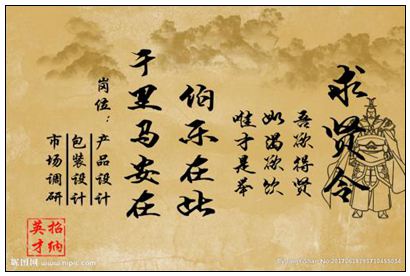 求贤令
吾欲得贤
如渴欲饮
唯才是举
伯乐在此
千里马安在
岗位：
产品设计
包装设计
市场调研
招纳
英才
昵图网 www.nipic.com